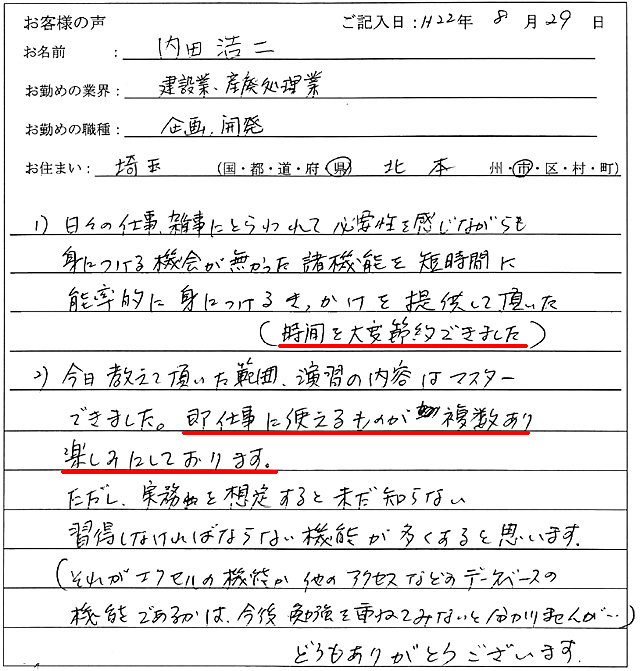 お客様の声 ご記入日：H22年 8月29日
お名前 ： 内田 浩二
お勤めの業界： 建設業、産廃処理業
お勤めの職種： 企画、開発
お住まい： 埼玉 （国・都・道・府・県） 北本 州・市・区・村・町）
1) 日々の仕事、雑事にとらわれて 必要性を感じながらも
身につける機会が無かった諸機能を短時間に
能率的に身につけるきっかけを提供して頂いた
（時間を大変節約できました）
2) 今日教えて頂いた範囲、演習の内容はマスター
できました。即仕事に使えるものが 複数あり
楽しみにしております。
ただし、実務 を想定すると未だ知らない
習得しなければならない機能が多くあると思います。
（それがエクセルの機能か他のアクセスなどのデータベースの
機能であるかは、今後勉強を重ねてみないと分かりませんが…）
どうもありがとうございます。